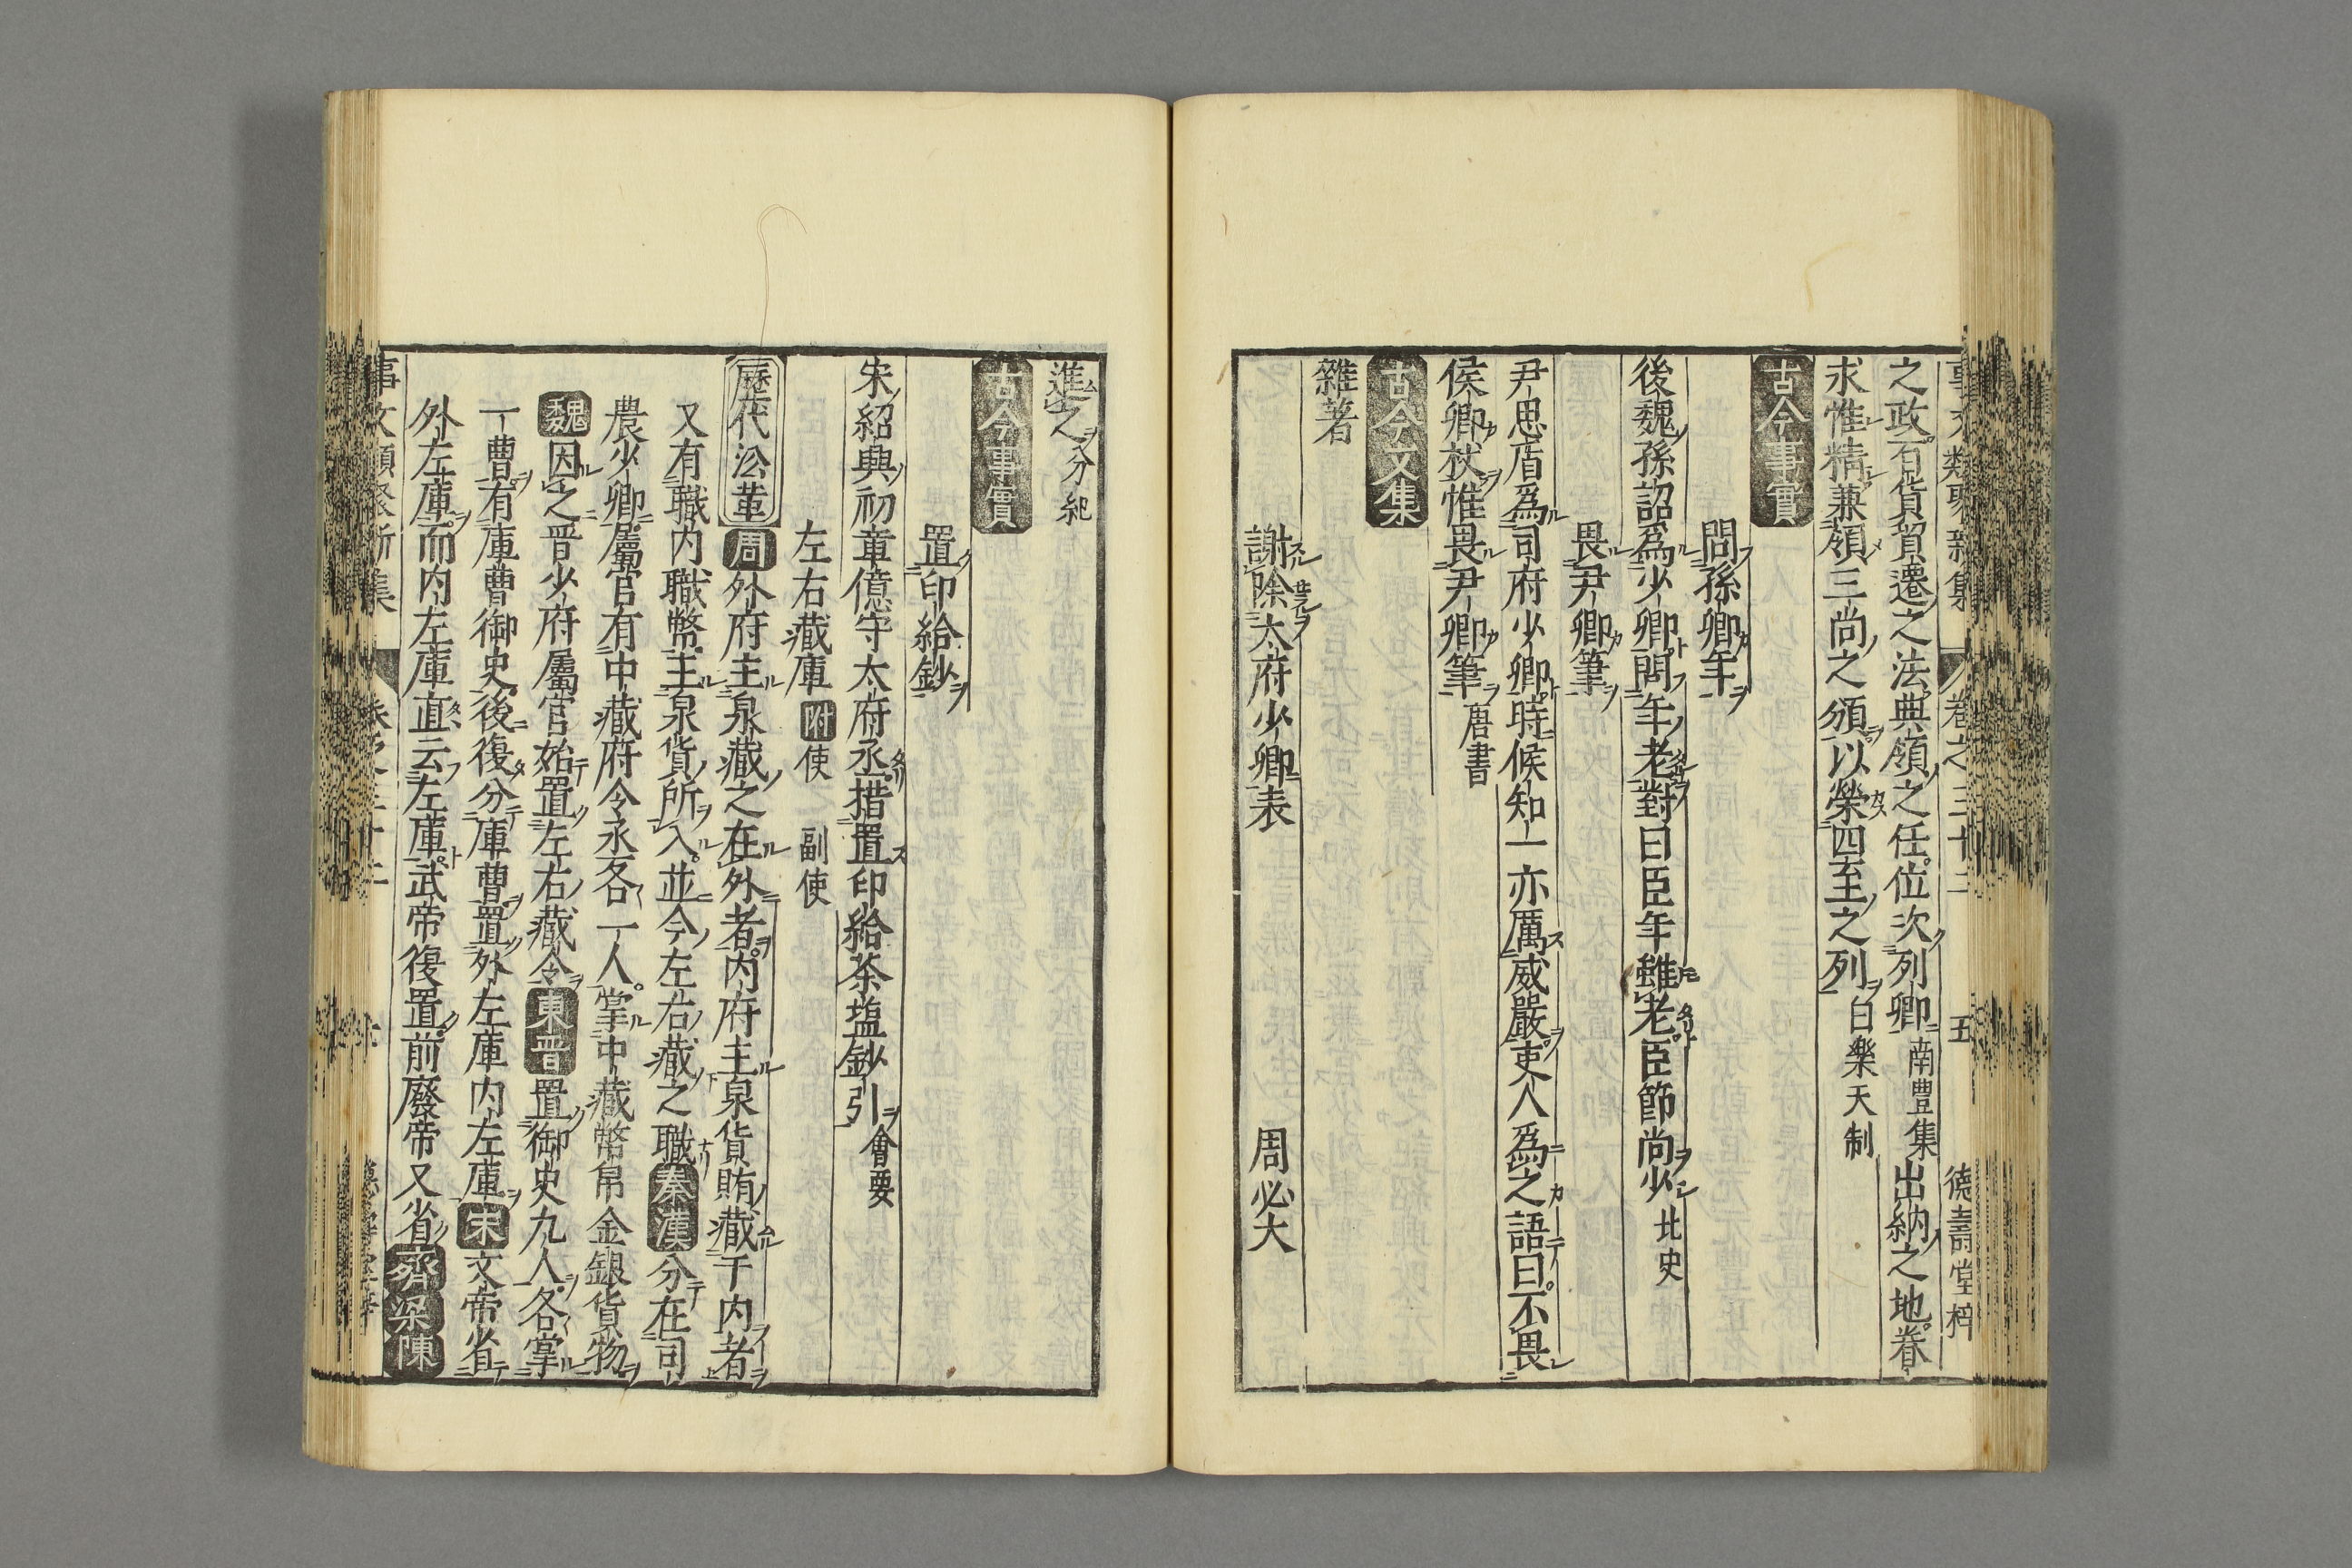 事文類聚新集 卷之三十二 五 德壽堂梓
之政右貨貿遷之法典領之任位次列卿南豊集出納之地眷
求惟精兼領三尚之頒以榮四至之列白樂天制
古今事實
問孫卿年
後魏孫詔爲少卿問年老對曰臣年雖老臣節尚少北史
畏尹卿筆
尹思盾爲司府少卿時候知一亦厲威嚴吏人爲之語曰不畏
侯卿杖惟畏尹卿筆唐書
古今文集
雜著
謝除太府少卿表 周必大
進之分紀
古今事實
置印給鈔
宋紹興初章億守太府丞措置印給茶塩鈔引會要
左右藏庫 附使 副使
歷代沿革 周外府主泉藏之在外者内府主泉貨賄藏于内者
又有職内職幣主泉貨所入並今左右藏之職秦漢分在司
農少卿屬官有中藏府令丞各一人掌中藏幣帛金銀貨物
魏因之晋少府屬官始置左右藏令東晋置御史九人各掌
一曹有庫曹御史後復分庫曹置外左庫内左庫宋文帝省
外左庫而内左庫直云左庫武帝復置前廢帝又省齊梁陳
事文類聚新集 卷之三十二